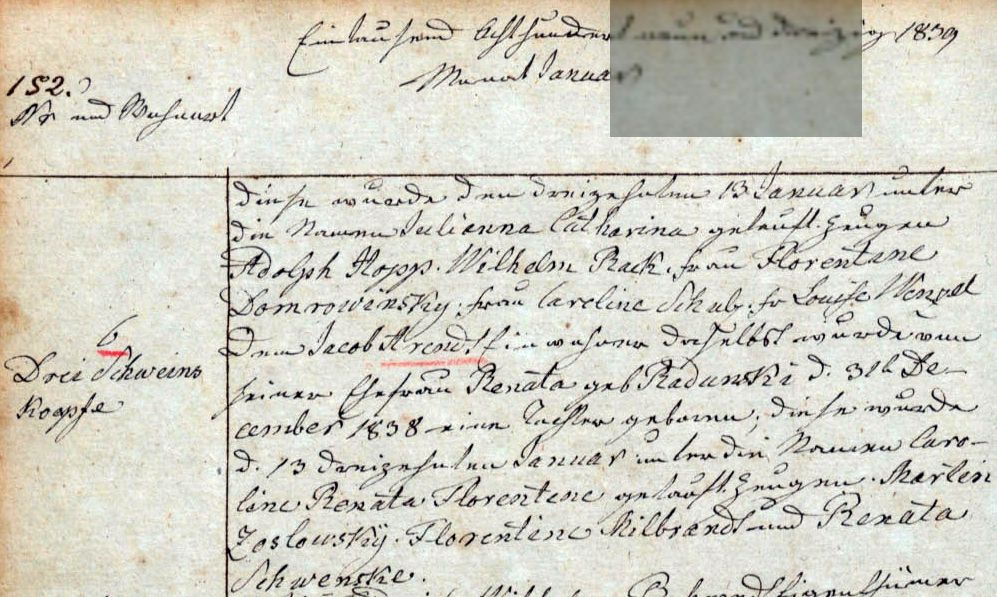 Eintausend Achthundert neun und dreizig 1839
Monat Januar
152.
Nr und Wohnort
diese wurde den dreizehnten 13 Januar unter
die Namen Julianna Catharina getauft. Zeugen
Adolph Hopp. Wilhelm Rack. frau Florentine
Domrowinsky. frau Careline Schulz. fr Louise Wenzel
6
Dem Jacob Arendt Einwohner daselbst wurde von
Drei Schweins
seiner Ehefrau Renata geb Radunski d. 31t De-
Koepfe
cember 1838 eine Tochter geboren, diese wurde
d. 13 dreizehnten Januar unter die Namen Caro-
line Renata Florentene getauft. Zeugen. Martin
Zoslowsky. Florentine Milbrandt und Renata
Schwenske.
Wilhelm Behrendt Eigenthümer